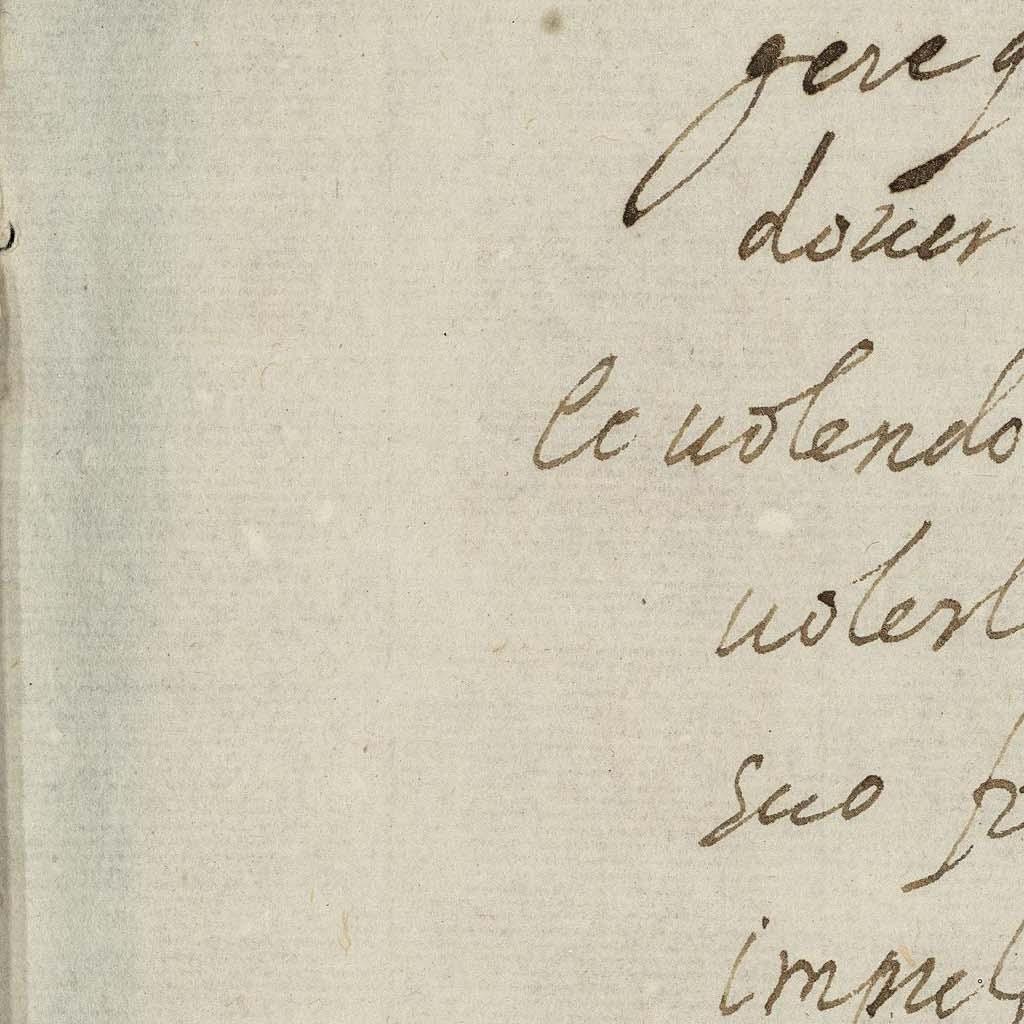 gere q
douer
le uolendo
uolerl
suo fr
impul